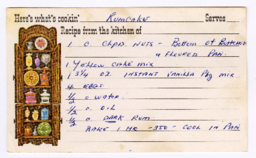 Here's what's cookin' Rumcake Serves
Recipe from the kitchen of
1 c Chpd. Nuts - Bottom of Buttered
& Floured Pan.
1 Yellow cake mix
1 3¾ oz. Instant Vanilla Pdg mix
4 eggs
½ c water
½ c oil
½ c Dark Rum
Bake 1 hr - 350 - Cool in Pan